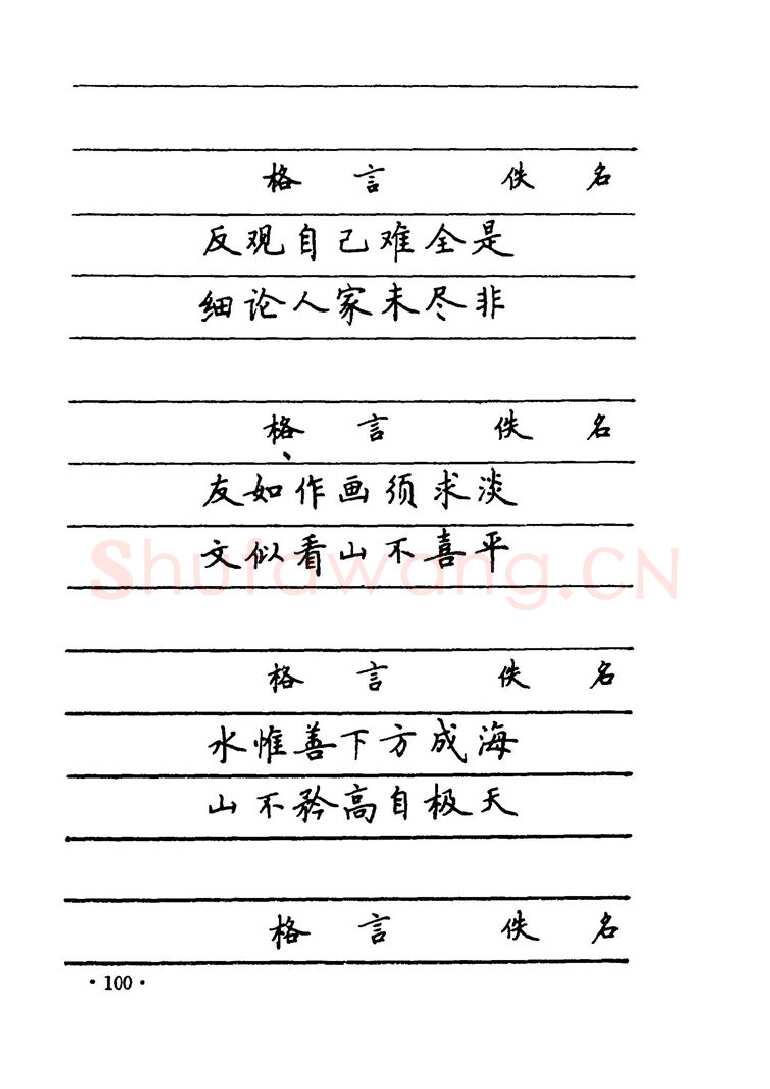 格言 佚名
反观自己难全是
细论人家未尽非
格言 佚名
友如作画须求淡
文似看山不喜平
Shufawang.CN
格言 佚名
水惟善下方成海
山不矜高自极天
格言 佚名
·100·